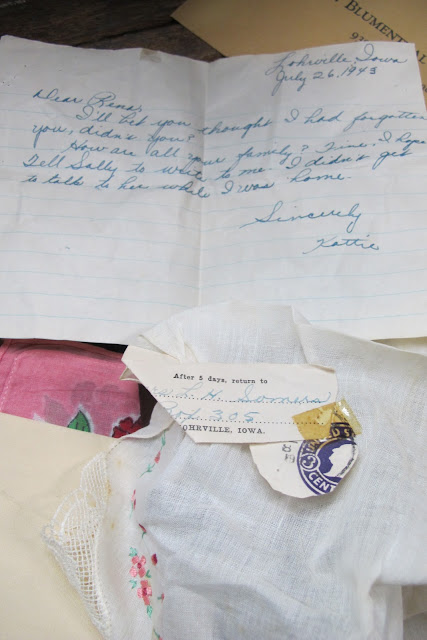 BLUMENT
97
Lohrville, Iowa
July 26, 1943
Dear Rena,
I'll bet you thought I had forgotten
you, didn't you?
How are all your family? Fine, I hope
Tell Sally to write to me. I didn't get
to talk to her while I was home.
Sincerely
Kattie
After 5 days, return to
L. H.
305
OHRVILLE, IOWA.
3
CENT